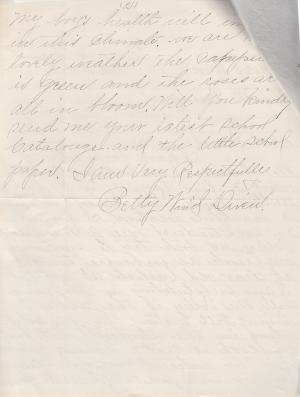 my boys health will im
in this climate. we are h
lovely weather the
is green and the roses ar
all in bloom. Will you kindly
send me your latest school
Catalouge and the little school
paper. I am Very Respectfully
Betty Wind